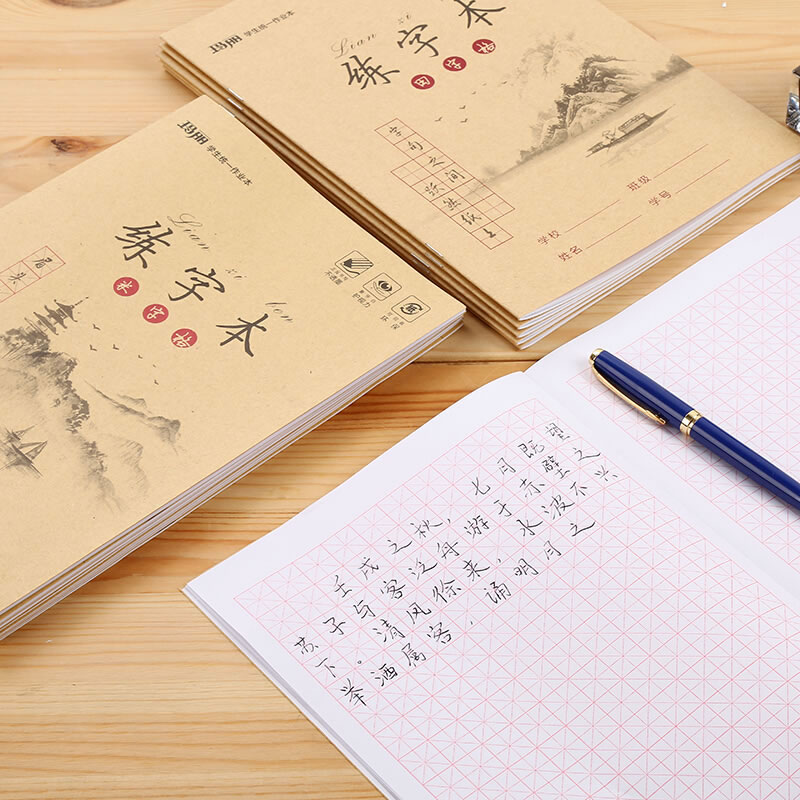 玛丽 学生统一作业本
Lian zi
练字本
田字格
字句之间
跃然纸上
学校 班级
姓名 学号
玛丽 学生统一作业本
Lian zi ben
练字本
米字格
眉头
不透墨
护视力
壬戌之秋，七月既望
苏子与客泛舟游于赤壁之
下。清风徐来，水波不兴
举酒属客，诵明月之